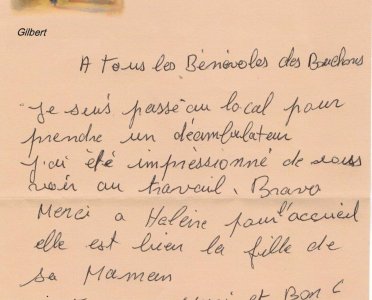 Gilbert
A Tous les Bénévoles des Bouchons
Je suis passé au local pour
prendre un déambulateur
J'ai été impressionné de vous
voir au travail. Bravo
Merci a Helène pour l'accueil
elle est bien la fille de
sa Maman
et Bon